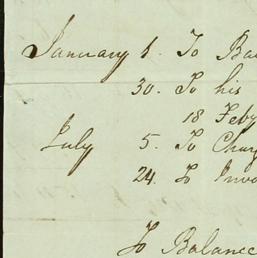 January 1. To Ba
30. To his
18 Feby
July 5. To Char
24. To Invo
To Balance